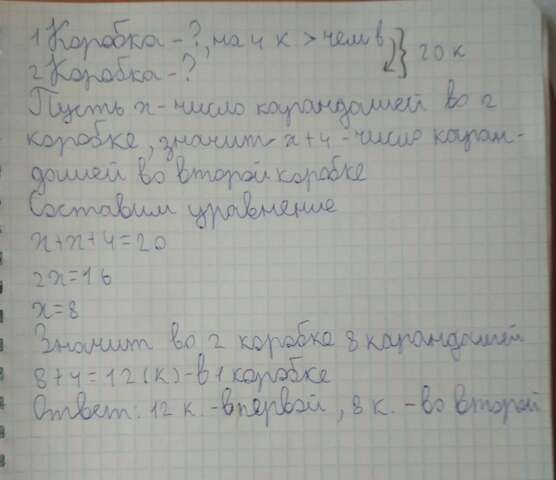 1 Коробка - ?, на 4 к > чем в } 20 к
2 Коробка - ?
Пусть х - число карандашей во 2
коробке, значит х+4 - число каран-
дашей во второй коробке
Составим уравнение
х+х+4=20
2х=16
х=8
Значит во 2 коробке 8 карандашей
8+4=12(к) - в 1 коробке
Ответ: 12 к. - в первой, 8 к. - во второй